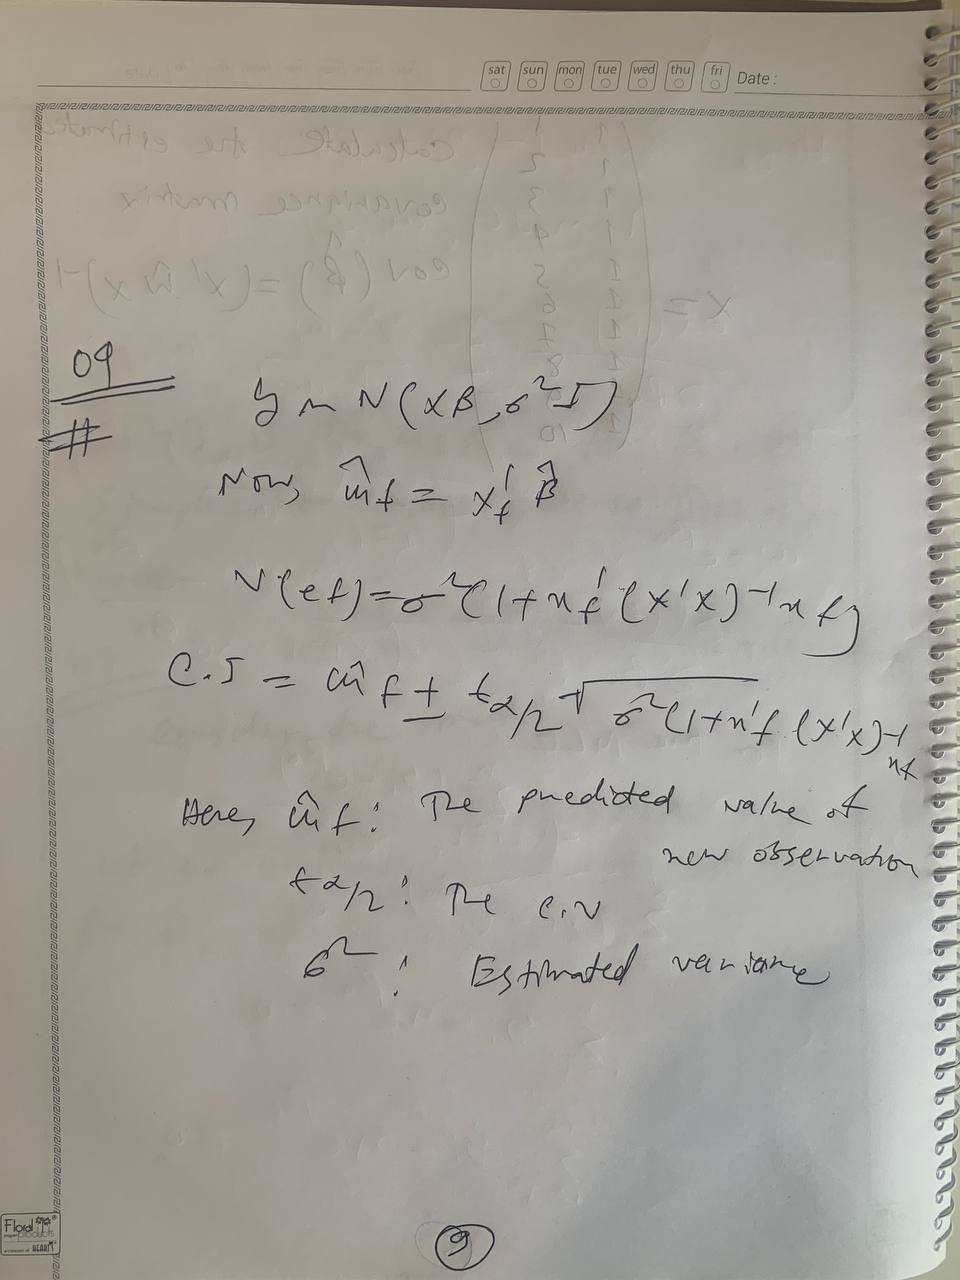 sat sun mon tue wed thu fri Date :
09
#
y ~ N(Xβ, σ²I)
Now, m̂f = x'f β̂
V(ef) = σ²(1+x'f (X'X)⁻¹xf)
C.I = m̂f ± tα/2 √σ²(1+x'f (X'X)⁻¹
xf
Here, m̂f : The predicted value of
new observation
tα/2 : The C.V
σ² : Estimated variance
Floral
products
9